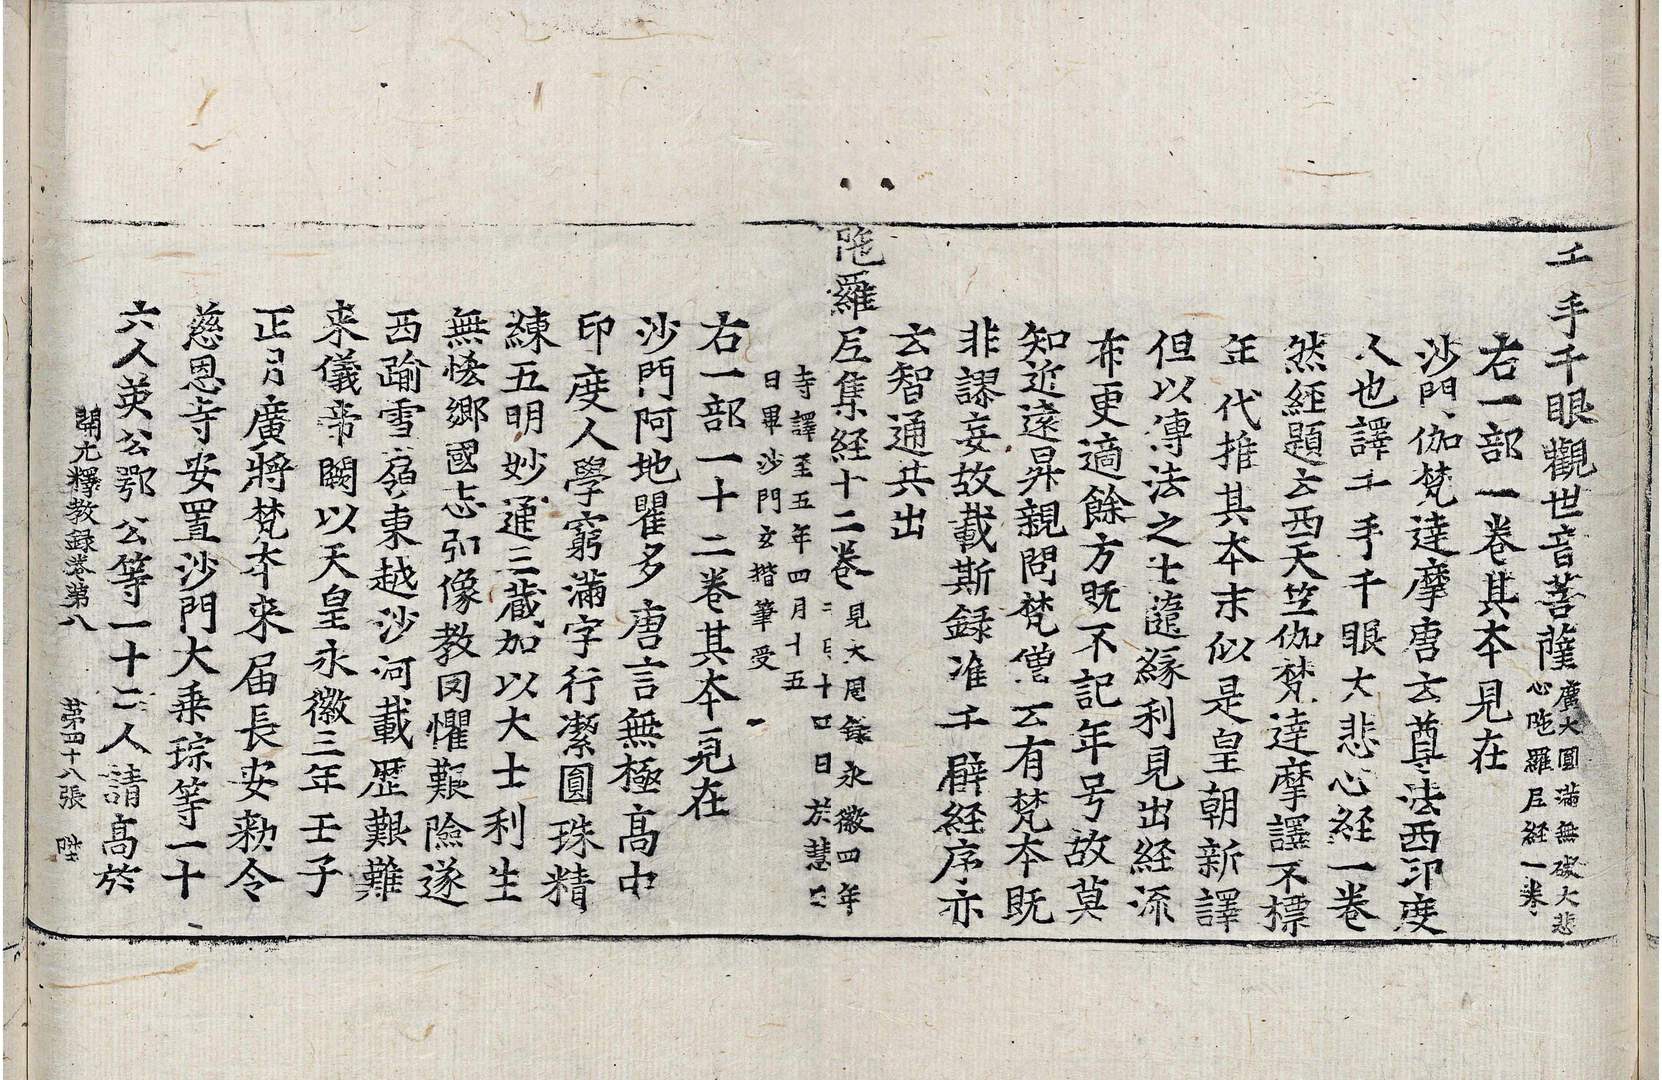 千手千眼觀世音菩薩廣大圓滿無礙大悲
心陁羅尼經一卷
右一部一卷其本見在
沙門伽梵達摩唐云尊法西印度
人也譯千手千眼大悲心經一卷
然經題云西天竺伽梵達摩譯不標
年代推其本末似是皇朝新譯
但以傳法之士隨緣利見出經流
布更適餘方既不記年号故莫
知近遠昇親問梵僧云有梵本既
非謬妄故載斯録准千臂經序亦
云智通共出
陁羅尼集經十二卷見大周録永徽四年
三月十四日於慧日
寺譯至五年四月十五
日畢沙門玄揩筆受
右一部一十二卷其本見在
沙門阿地瞿多唐言無極高中
印度人學窮滿字行潔圓珠精
練五明妙通三藏加以大士利生
無悋鄉國志弘像教罔懼艱險遂
西踰雪嶺東越沙河載歷艱難
来儀帝闕以天皇永徽三年壬子
正月廣將梵本来届長安勑令
慈恩寺安置沙門大乗琮等一十
六人英公鄂公等一十二人請高於
開元釋教録卷第八　第四十八張　陛